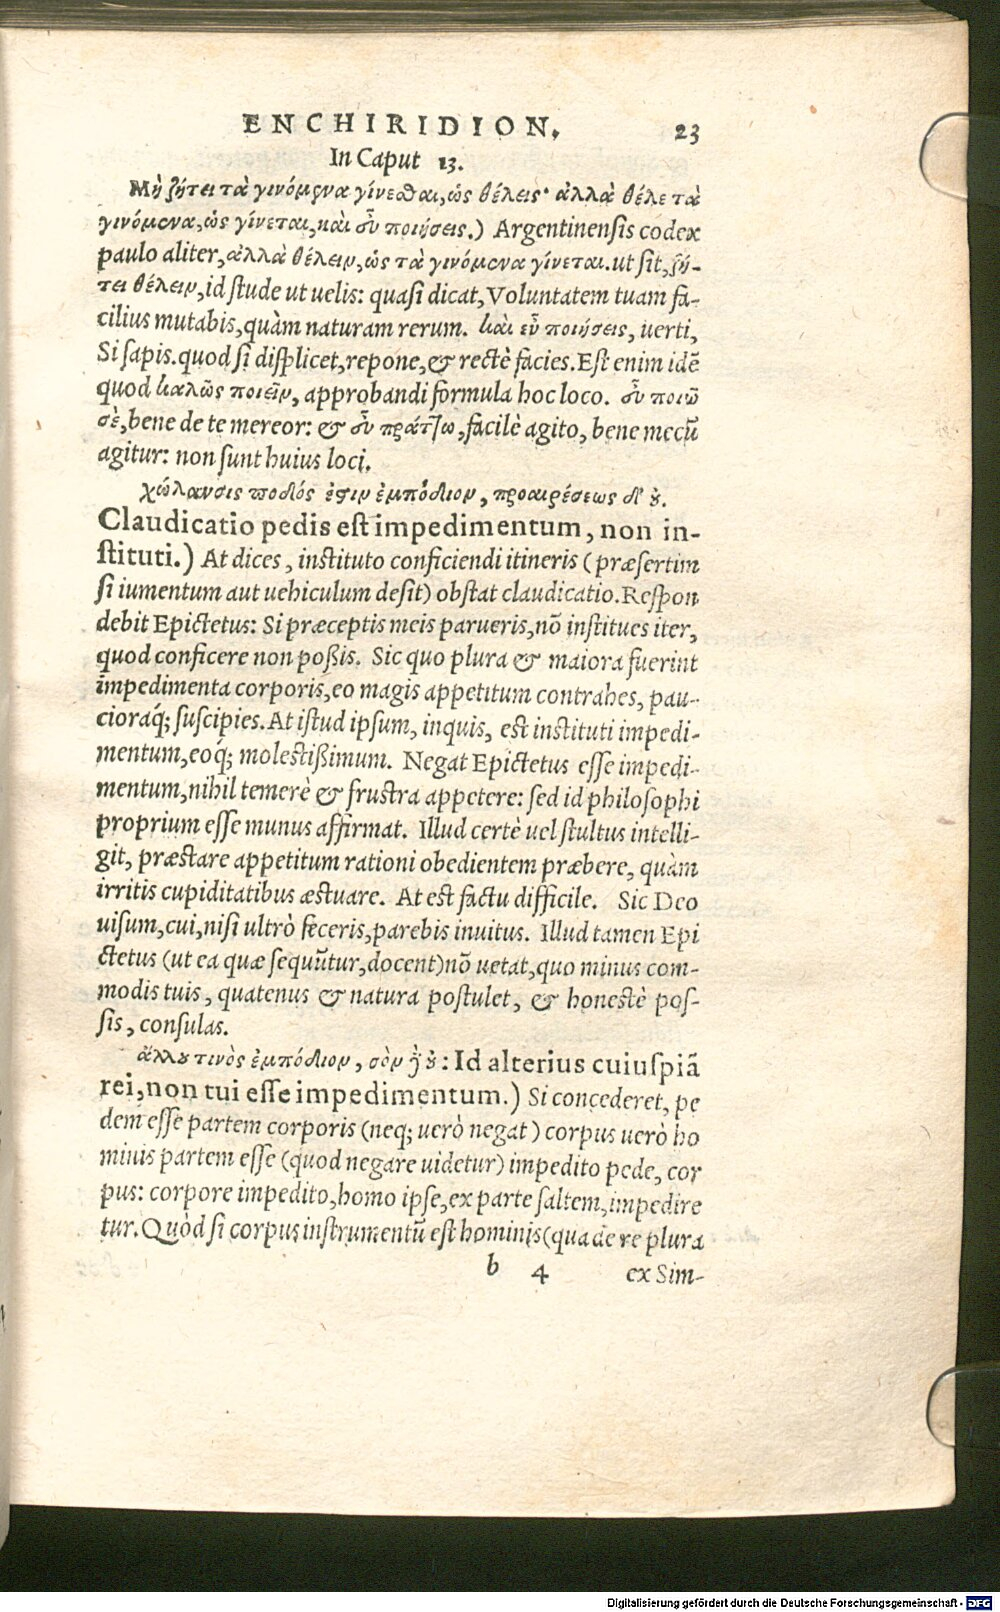 ENCHIRIDION. 23
In Caput 13.
Μὴ ζήτει τὰ γινόμενα γίνεσθαι, ὡς θέλεις· ἀλλὰ θέλε τὰ
γινόμενα, ὡς γίνεται, καὶ εὖ ποιήσεις.) Argentinensis codex
paulo aliter, ἀλλὰ θέλειν, ὡς τὰ γινόμενα γίνεται. ut sit, ζή-
τει θέλειν, id stude ut uelis: quasi dicat, Voluntatem tuam fa-
cilius mutabis, quàm naturam rerum. καὶ εὖ ποιήσεις, uerti,
Si sapis. quod si displicet, repone, & rectè facies. Est enim idē
quod καλῶς ποιεῖν, approbandi formula hoc loco. εὖ ποιῶ
σὲ, bene de te mereor: & εὖ πράττω, facilè agito, bene mecū
agitur: non sunt huius loci.
χώλανσις ποδός ἐστιν ἐμπόδιον, προαιρέσεως δ' ȣ̓.
Claudicatio pedis est impedimentum, non in-
stituti.) At dices, instituto conficiendi itineris (præsertim
si iumentum aut uehiculum desit) obstat claudicatio. Respon
debit Epictetus: Si præceptis meis parueris, nō institues iter,
quod conficere non poßis. Sic quo plura & maiora fuerint
impedimenta corporis, eo magis appetitum contrahes, pau-
cioraq́; suscipies. At istud ipsum, inquis, est instituti impedi-
mentum, eoq́; molestißimum. Negat Epictetus esse impedi-
mentum, nihil temerè & frustra appetere: sed id philosophi
proprium esse munus affirmat. Illud certè uel stultus intelli-
git, præstare appetitum rationi obedientem præbere, quàm
irritis cupiditatibus æstuare. At est factu difficile. Sic Deo
uisum, cui, nisi ultrò feceris, parebis inuitus. Illud tamen Epi
ctetus (ut ea quæ sequūtur, docent) nō uetat, quo minus com-
modis tuis, quatenus & natura postulet, & honestè pos-
sis, consulas.
ἄλλȣ τινὸς ἐμπόδιον, σὸν δὲ ȣ̓: Id alterius cuiuspiā
rei, non tui esse impedimentum.) Si concederet, pe
dem esse partem corporis (neq; uerò negat) corpus uerò ho
minis partem esse (quod negare uidetur) impedito pede, cor
pus: corpore impedito, homo ipse, ex parte saltem, impedire
tur. Quòd si corpus instrumentū est hominis (qua de re plura
b 4 ex Sim-
Digitalisierung gefördert durch die Deutsche Forschungsgemeinschaft - DFG